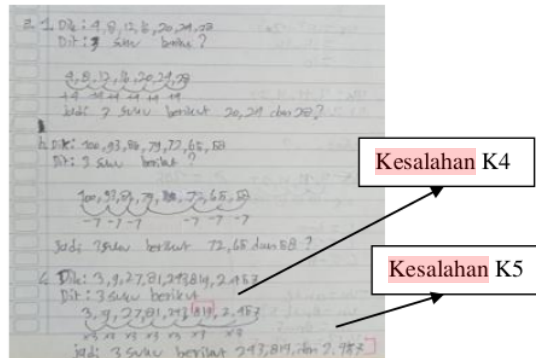 a. 1. Dik: 4, 8, 12, 16, 20, 24, 28
Dit: 3 suku berikut?
4, 8, 12, 16, 20, 24, 28
+4 +4 +4 +4 +4 +4
Jadi 3 suku berikut 20, 24 dan 28?
b. Dik: 100, 93, 86, 79, 72, 65, 58
Dit: 3 suku berikut?
100, 93, 86, 79, 72, 65, 58
-7 -7 -7 -7 -7 -7
Jadi 3 suku berikut 72, 65 dan 58?
Kesalahan K4
c. Dik: 3, 9, 27, 81, 243, 819, 2.457
Dit: 3 suku berikut
Kesalahan K5
3, 9, 27, 81, 243, 819, 2.457
x3 x3 x3 x3 x3 x3
jadi 3 suku berikut 243, 819, dan 2.457